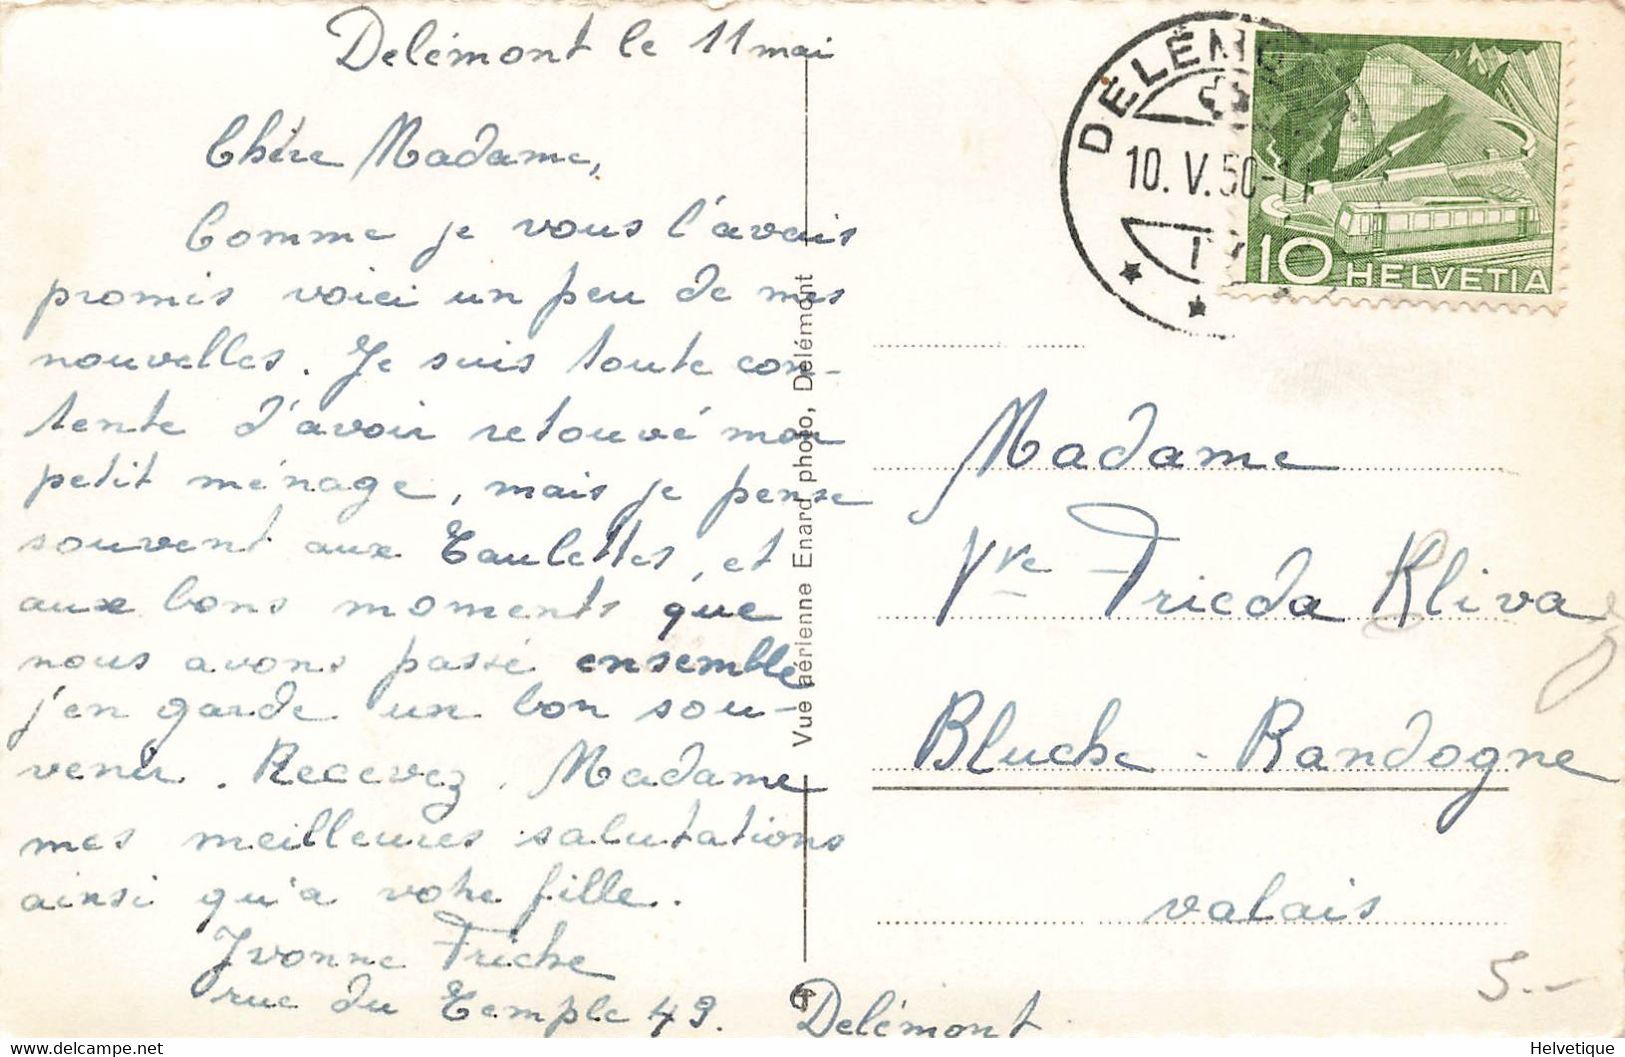 Delémont le 11 mai
Chère Madame,
Comme je vous l'avais
promis voici un peu de mes
nouvelles. Je suis toute con-
tente d'avoir retouvé mon
petit ménage, mais je pense
souvent aux Taulettes, et
aux bons moments que
nous avons passé ensemble
j'en garde un bon sou-
venir. Recevez, Madame
mes meilleures salutations
ainsi qu'a votre fille.
Yvonne Friche
rue du Temple 49. Delémont
Vue aérienne Enard photo, Delémont
DELÉM
10. V. 50-11
10 HELVETIA
Madame
Vve Frieda Kliva
Bluche - Randogne
valais
5.-
delcampe.net
Helvetique